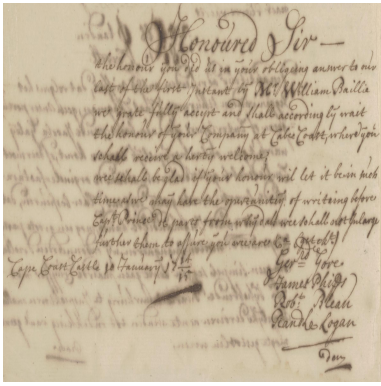 Honoured Sir
the honour you did us in your obliging answer to our
last of the first Instant by Mr. William Baillie
we gratefully accept and shall accordingly wait
the honour of your Company at Cabo Coast, where you
shall receive a harty welcome;
we shall be glad if your honour will let it be in such
time as we may have the opurtunity of writeing before
Capt. parts from whydah we shall not Inlarge
further then to assure you we are &ca
Cape Coast Castle 10 January
Ger:rd Gore
James Phipps
Robt. Bleau
Logan